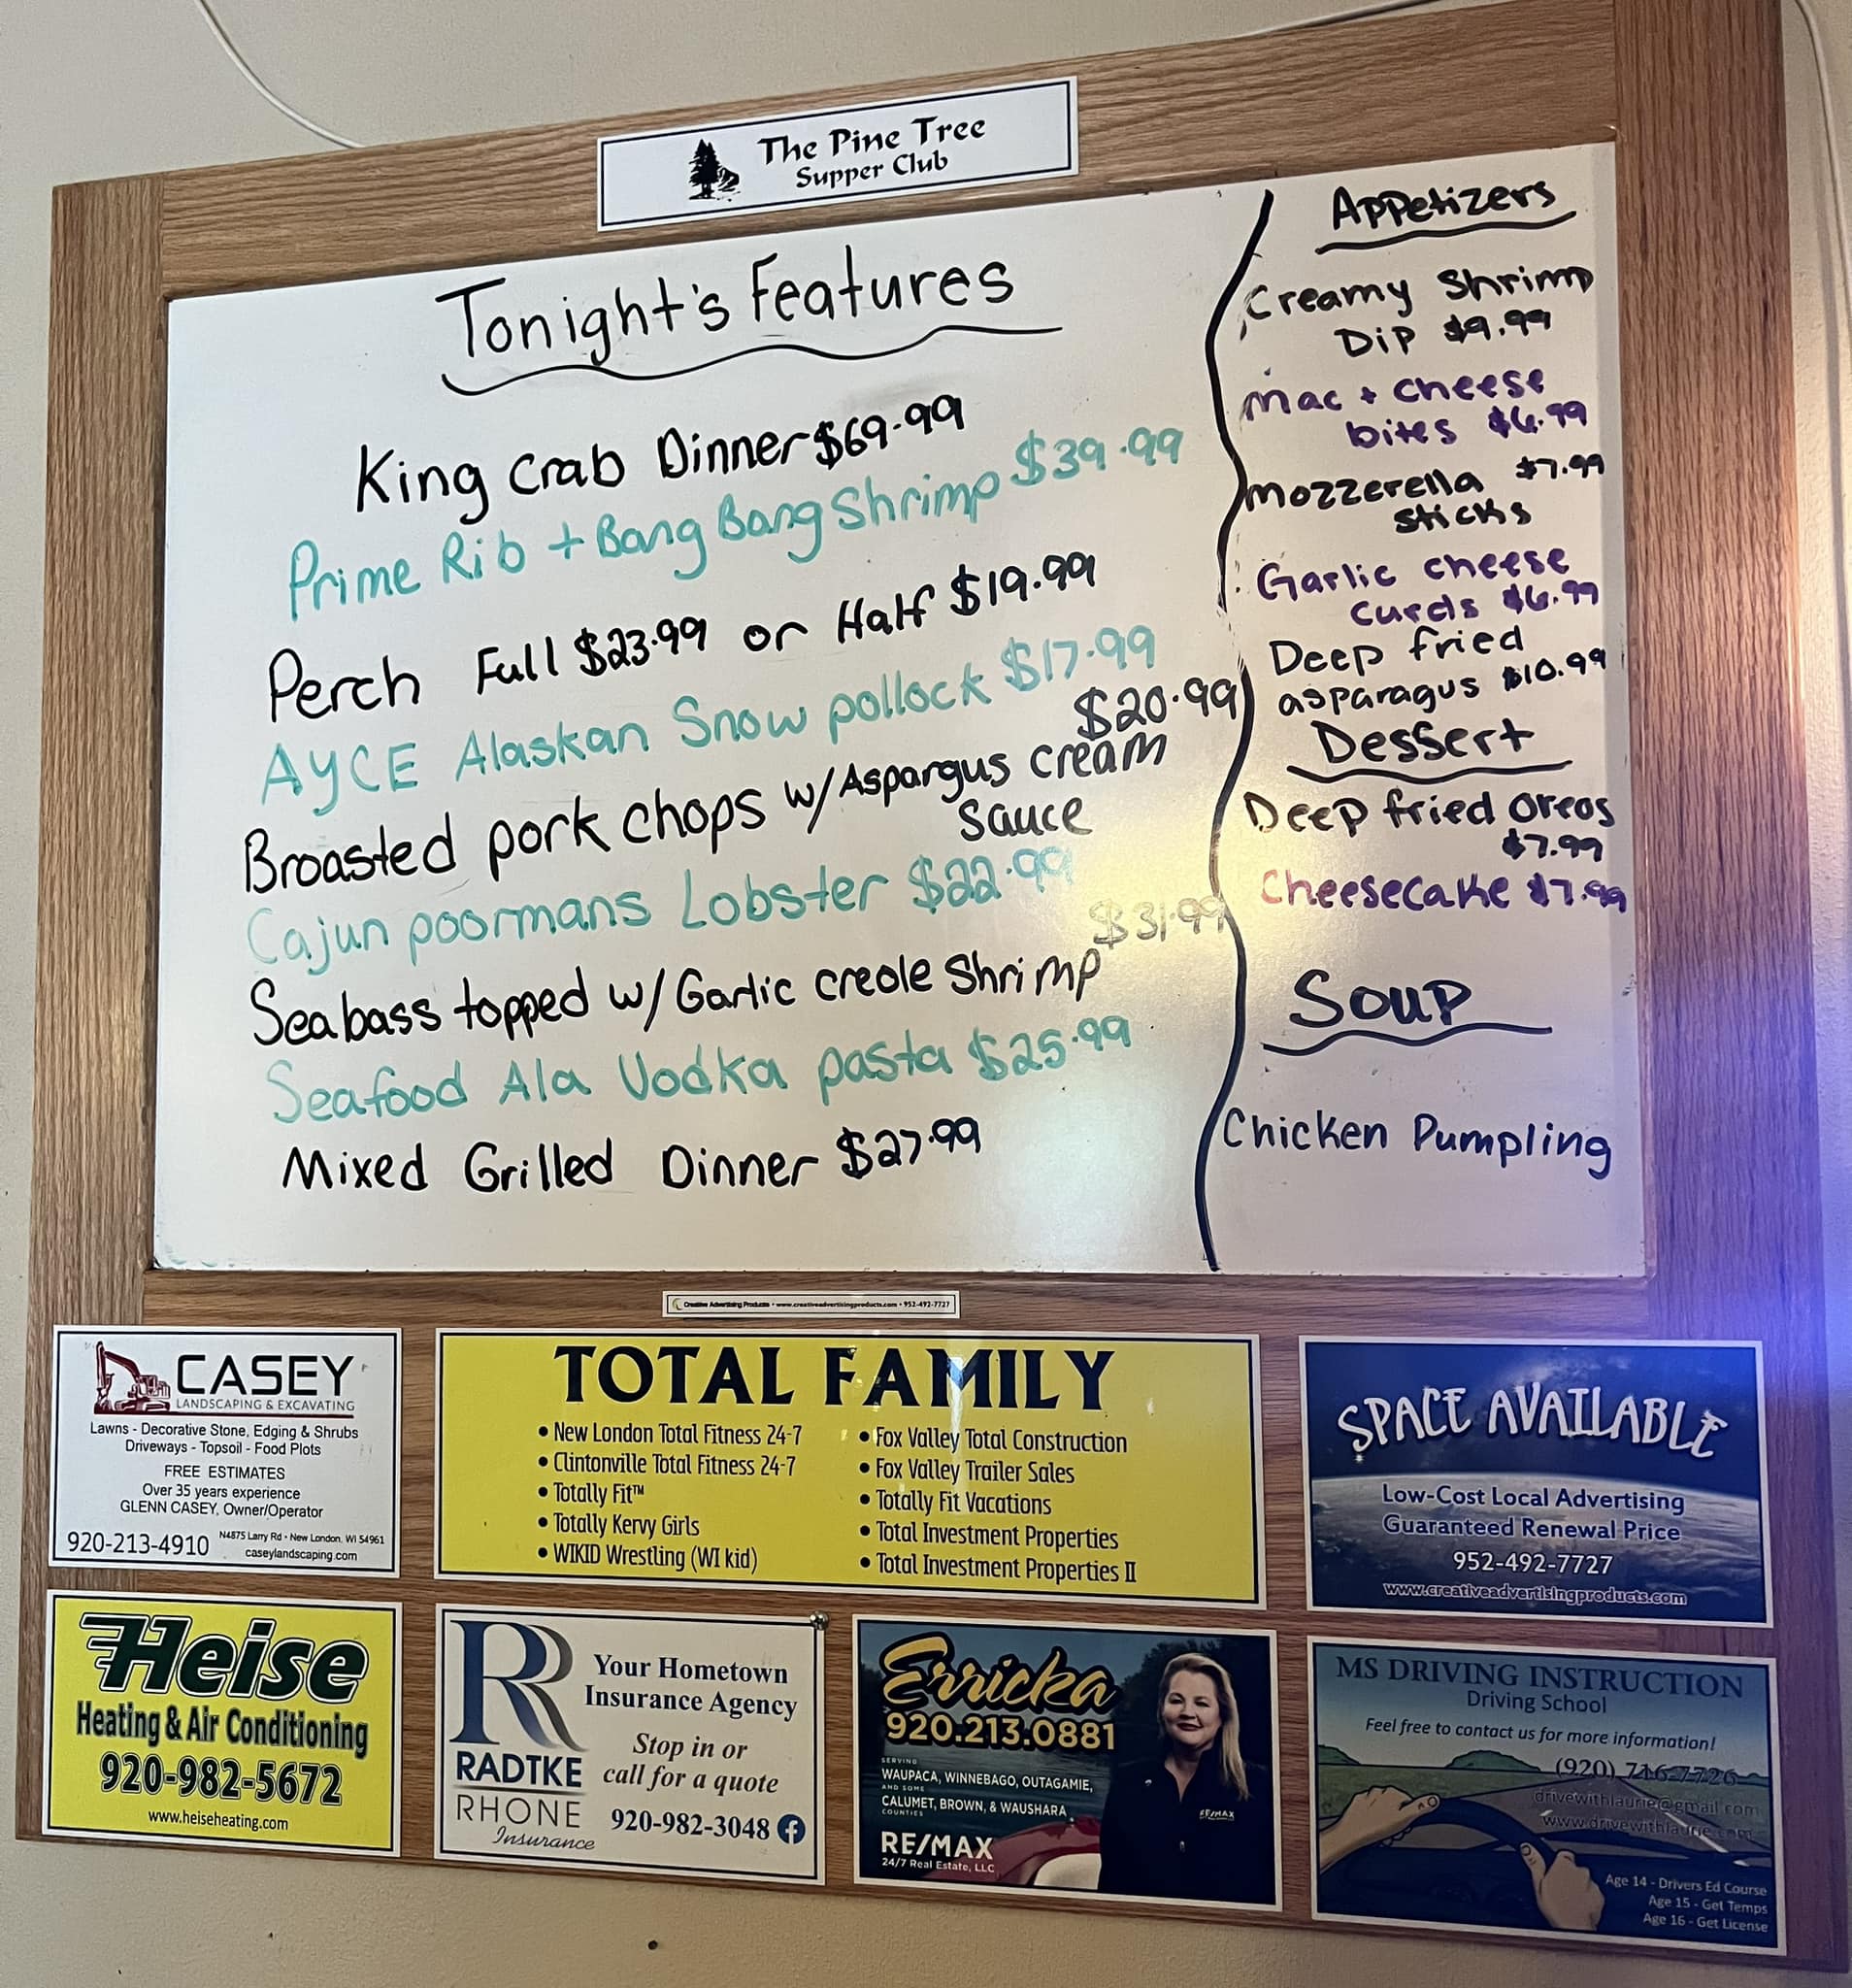 The Pine Tree
Supper Club
Tonight's Features
King Crab Dinner $69.99
Prime Rib + Bang Bang Shrimp $39.99
Perch Full $23.99 or Half $19.99
AYCE Alaskan Snow pollock $17.99
$20.99
Broasted pork chops w/ Aspargus cream
sauce
Cajun poormans Lobster $22.99
$31.99
Seabass topped w/ Garlic creole Shrimp
Seafood Ala Vodka pasta $25.99
Mixed Grilled Dinner $27.99
Appetizers
Creamy Shrimp
Dip $9.99
Mac + cheese
bites $6.99
mozzerella $7.99
sticks
Garlic cheese
curds $6.99
Deep fried
asparagus $10.99
Dessert
Deep fried oreos
$7.99
Cheesecake $7.99
Soup
Chicken Dumpling
Creative Advertising Products • www.creativeadvertisingproducts.com • 952-492-7727
CASEY
LANDSCAPING & EXCAVATING
Lawns - Decorative Stone, Edging & Shrubs
Driveways - Topsoil - Food Plots
FREE ESTIMATES
Over 35 years experience
GLENN CASEY, Owner/Operator
920-213-4910
N4875 Larry Rd • New London, WI 54961
caseylandscaping.com
TOTAL FAMILY
• New London Total Fitness 24-7
• Clintonville Total Fitness 24-7
• Totally Fit™
• Totally Kervy Girls
• WIKID Wrestling (WI kid)
• Fox Valley Total Construction
• Fox Valley Trailer Sales
• Totally Fit Vacations
• Total Investment Properties
• Total Investment Properties II
SPACE AVAILABLE
Low-Cost Local Advertising
Guaranteed Renewal Price
952-492-7727
www.creativeadvertisingproducts.com
Heise
Heating & Air Conditioning
920-982-5672
www.heiseheating.com
RR
RADTKE
RHONE
Insurance
Your Hometown
Insurance Agency
Stop in or
call for a quote
920-982-3048
Erricka
920.213.0881
SERVING
WAUPACA, WINNEBAGO, OUTAGAMIE,
AND SOME
CALUMET, BROWN, & WAUSHARA
COUNTIES
RE/MAX
24/7 Real Estate, LLC
RE/MAX
MS DRIVING INSTRUCTION
Driving School
Feel free to contact us for more information!
(920) 716-7726
drivewithlaurie@gmail.com
www.drivewithlaurie.com
Age 14 - Drivers Ed Course
Age 15 - Get Temps
Age 16 - Get License